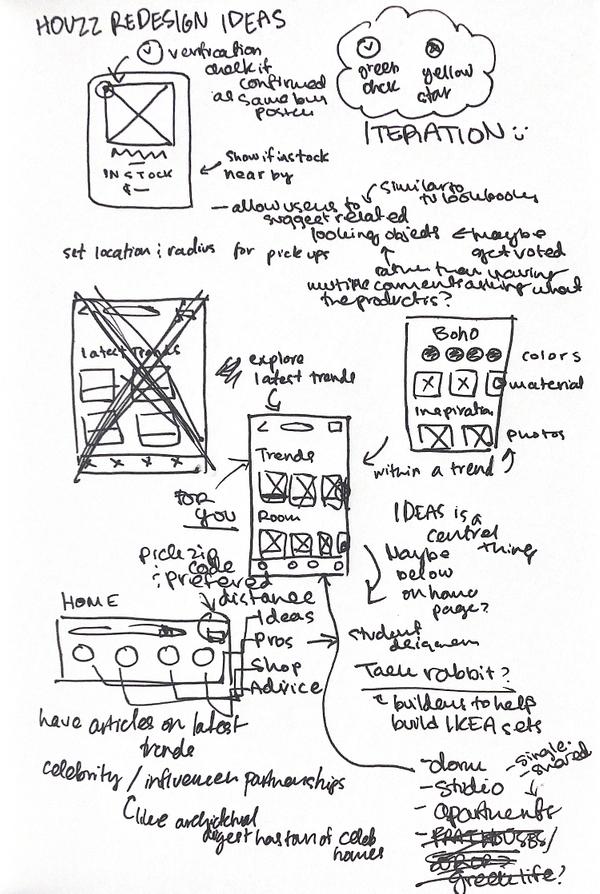 HOUZZ REDESIGN IDEAS
verification
check if
confirmed
as same by
poster
green
check
yellow
star
ITERATION :)
IN STOCK
$—
show if in stock
near by
- allow users to
suggest related
looking objects
similar to
lookbooks
maybe
get voted
rather than having
multiple comments asking what
the product is?
set location : radius for pick ups
Latest Trends
explore
latest trends
Boho
Inspiration
colors
material
photos
within a trend
Trends
Room
FOR
YOU
IDEAS is a
central
thing
Maybe
below
on home
page?
pick zip
code
: preferred
distance
HOME
Ideas
Pros
Shop
Advice
student
designers
Task rabbit?
builders to help
build IKEA sets
have articles on latest
trends
celebrity / influencer partnerships
like architectural
digest has tour of celeb
homes
- dorm
- single
- shared
- studio
- apartments
- FRAT HOUSES/
greek life?